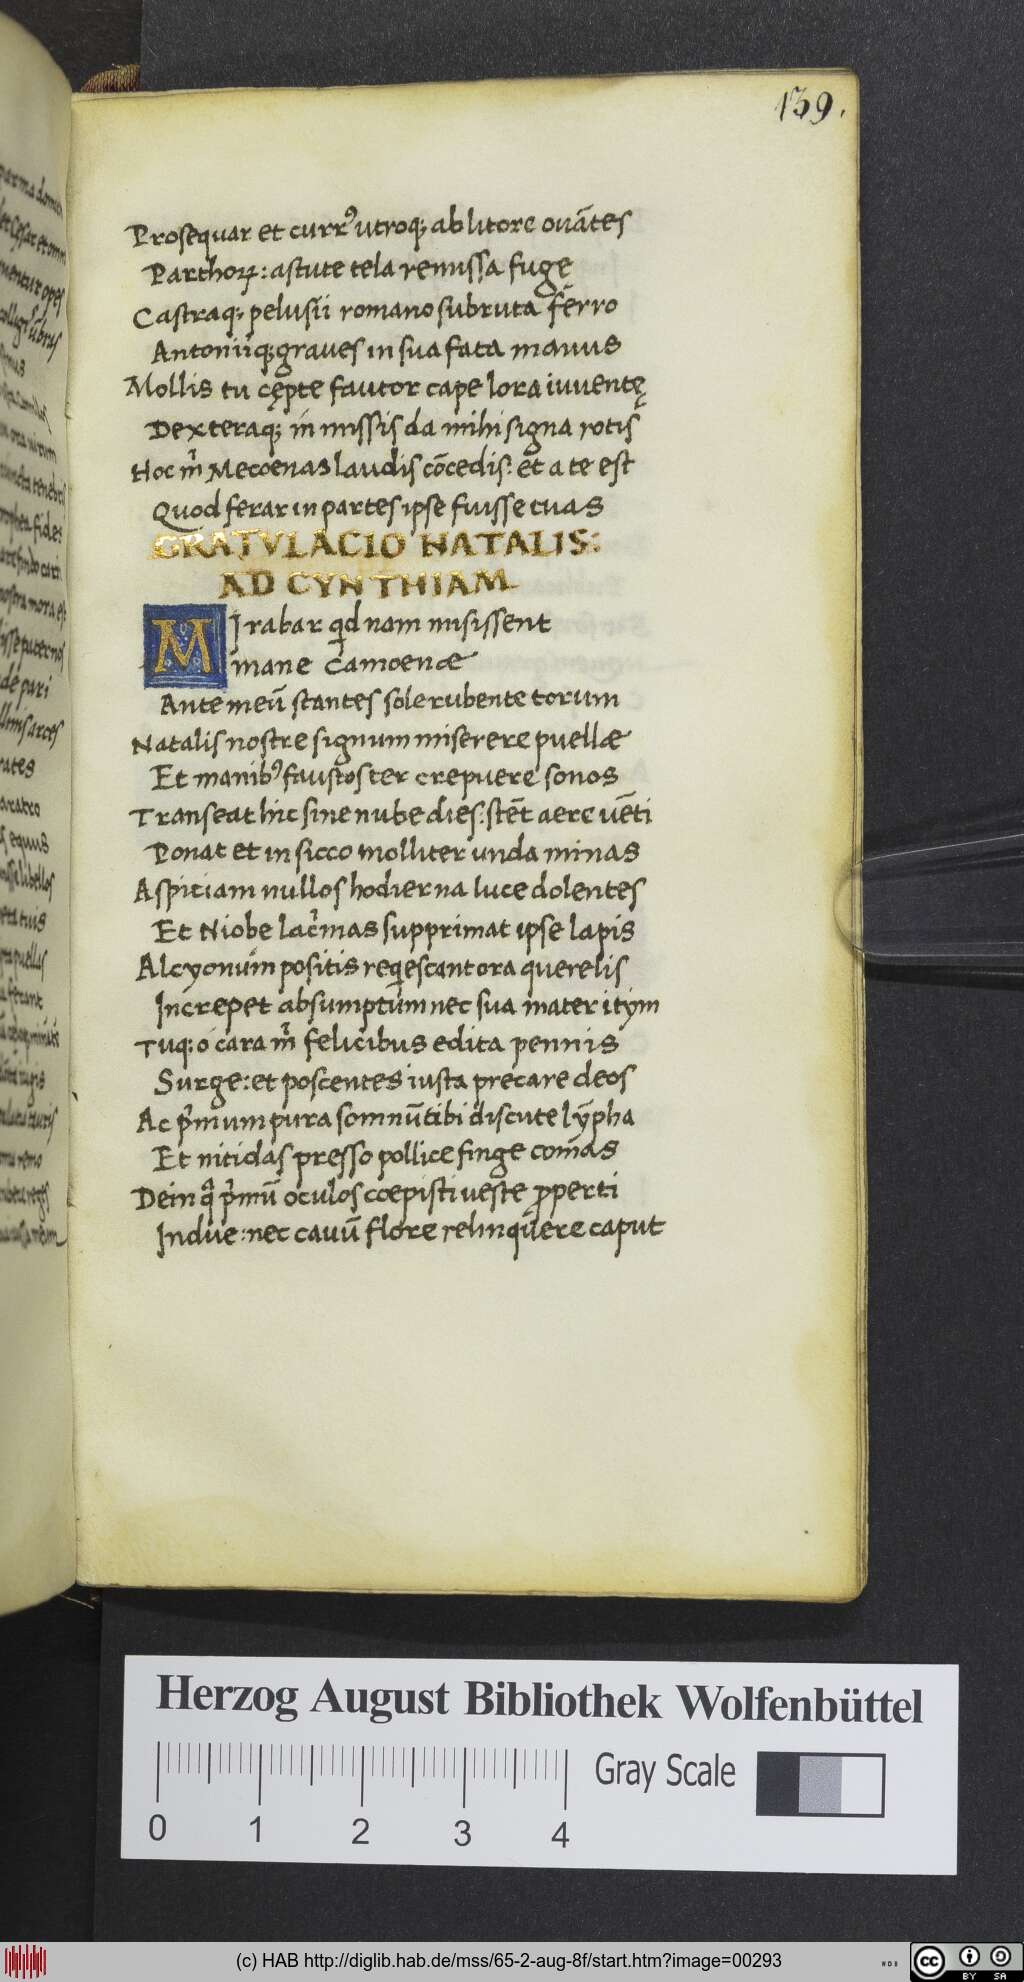 139.
Prosequar et curr⁹ utroq; ab litore ovātes
Parthoꝝ: astute tela remissa fuge
Castraq; pelusii romano subruta ferro
Antoniiq; graves in sua fata manus
Mollis tu cępte fautor cape lora iuventę
Dexteraq; immissis da mihi signa rotis
Hoc m̊ Mecoenas laudis cōcedis: et a te est
Quod ferar in partes ipse fuisse tuas
GRATVLACIO NATALIS:
AD CYNTHIAM
MIrabar qd nam misissent
mane Camoenae
Ante meū stantes sole rubente torum
Natalis nostre signum miserere puellae
Et manib⁹ faustos ter crepuere sonos
Transeat hic sine nube dies: stēt aere vēti
Ponat et in sicco molliter unda minas
Aspitiam nullos hodierna luce dolentes
Et Niobe lac̊mas supprimat ipse lapis
Alcyonum positis reqescant ora querelis
Increpet absumptum nec sua mater itym
Tuq; o cara m̊ felicibus edita pennis
Surge: et poscentes iusta precare deos
Ac p̊mum pura somnū tibi discute lympha
Et nitidas presso pollice finge comas
Dein q̊ p̊mū oculos coepisti veste ꝓperti
Indue: nec cavū flore relinquere caput
Herzog August Bibliothek Wolfenbüttel
0 1 2 3 4
Gray Scale
(c) HAB http://diglib.hab.de/mss/65-2-aug-8f/start.htm?image=00293
cc BY SA